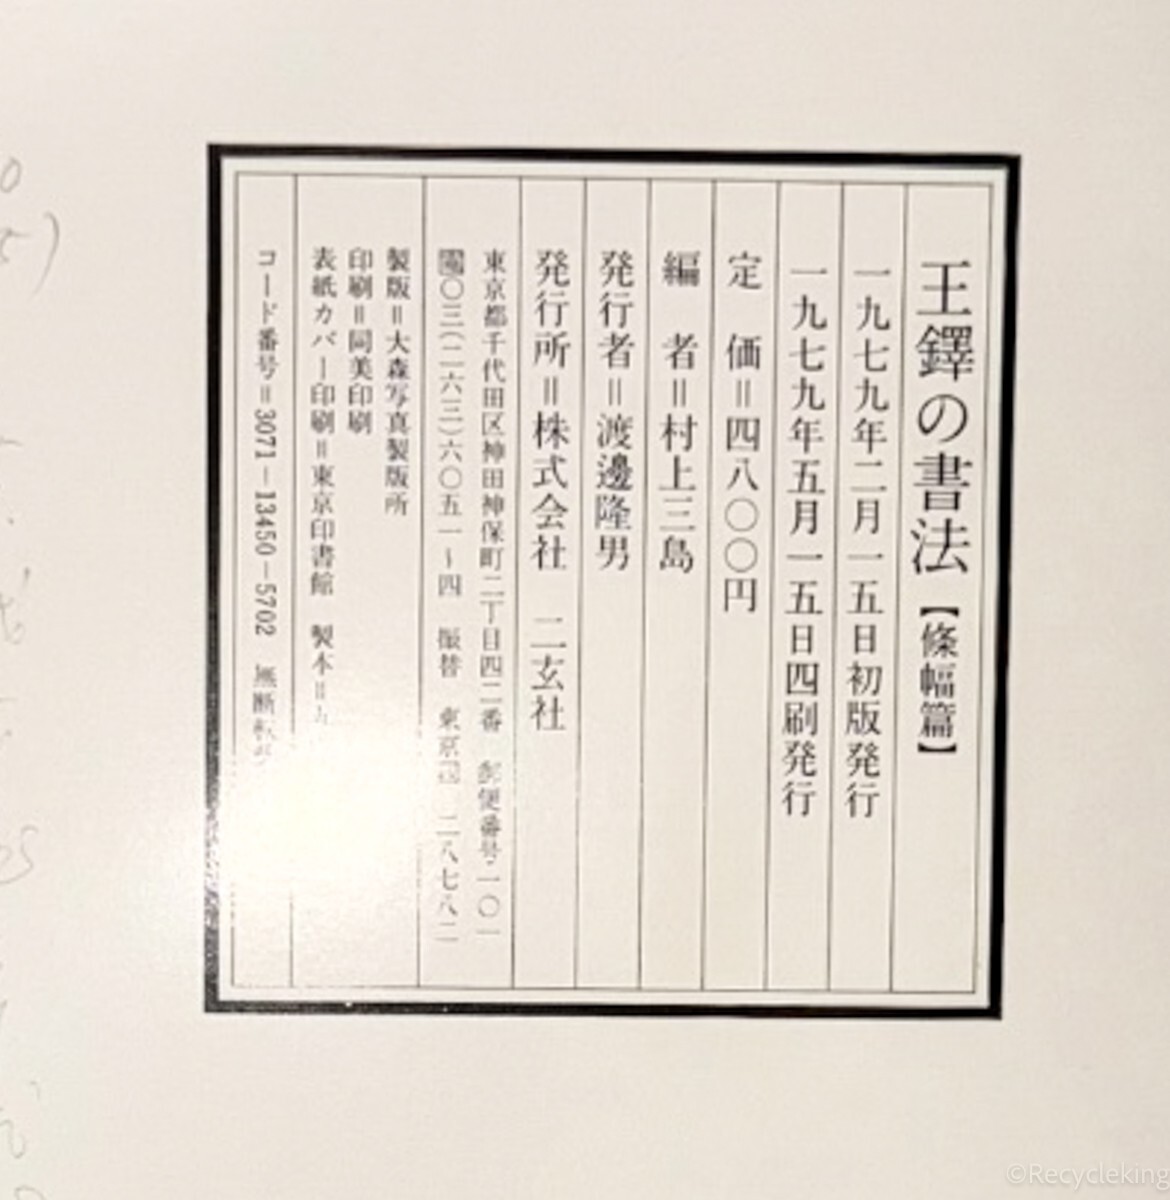 王鐸の書法【條幅篇】
一九七九年二月一五日初版発行
一九七九年五月一五日四刷発行
定 価＝四八〇〇円
編 者＝村上三島
発行者＝渡邊隆男
発行所＝株式会社 二玄社
東京都千代田区神田神保町二丁目四二番 郵便番号一〇一
〇三(二六三)六〇五一〜四 振替 東京 二八七八二
製版＝大森写真製版所
印刷＝同美印刷
表紙カバー印刷＝東京印書館 製本＝
コード番号＝3071－13450－5702 無断転
©Recycleking